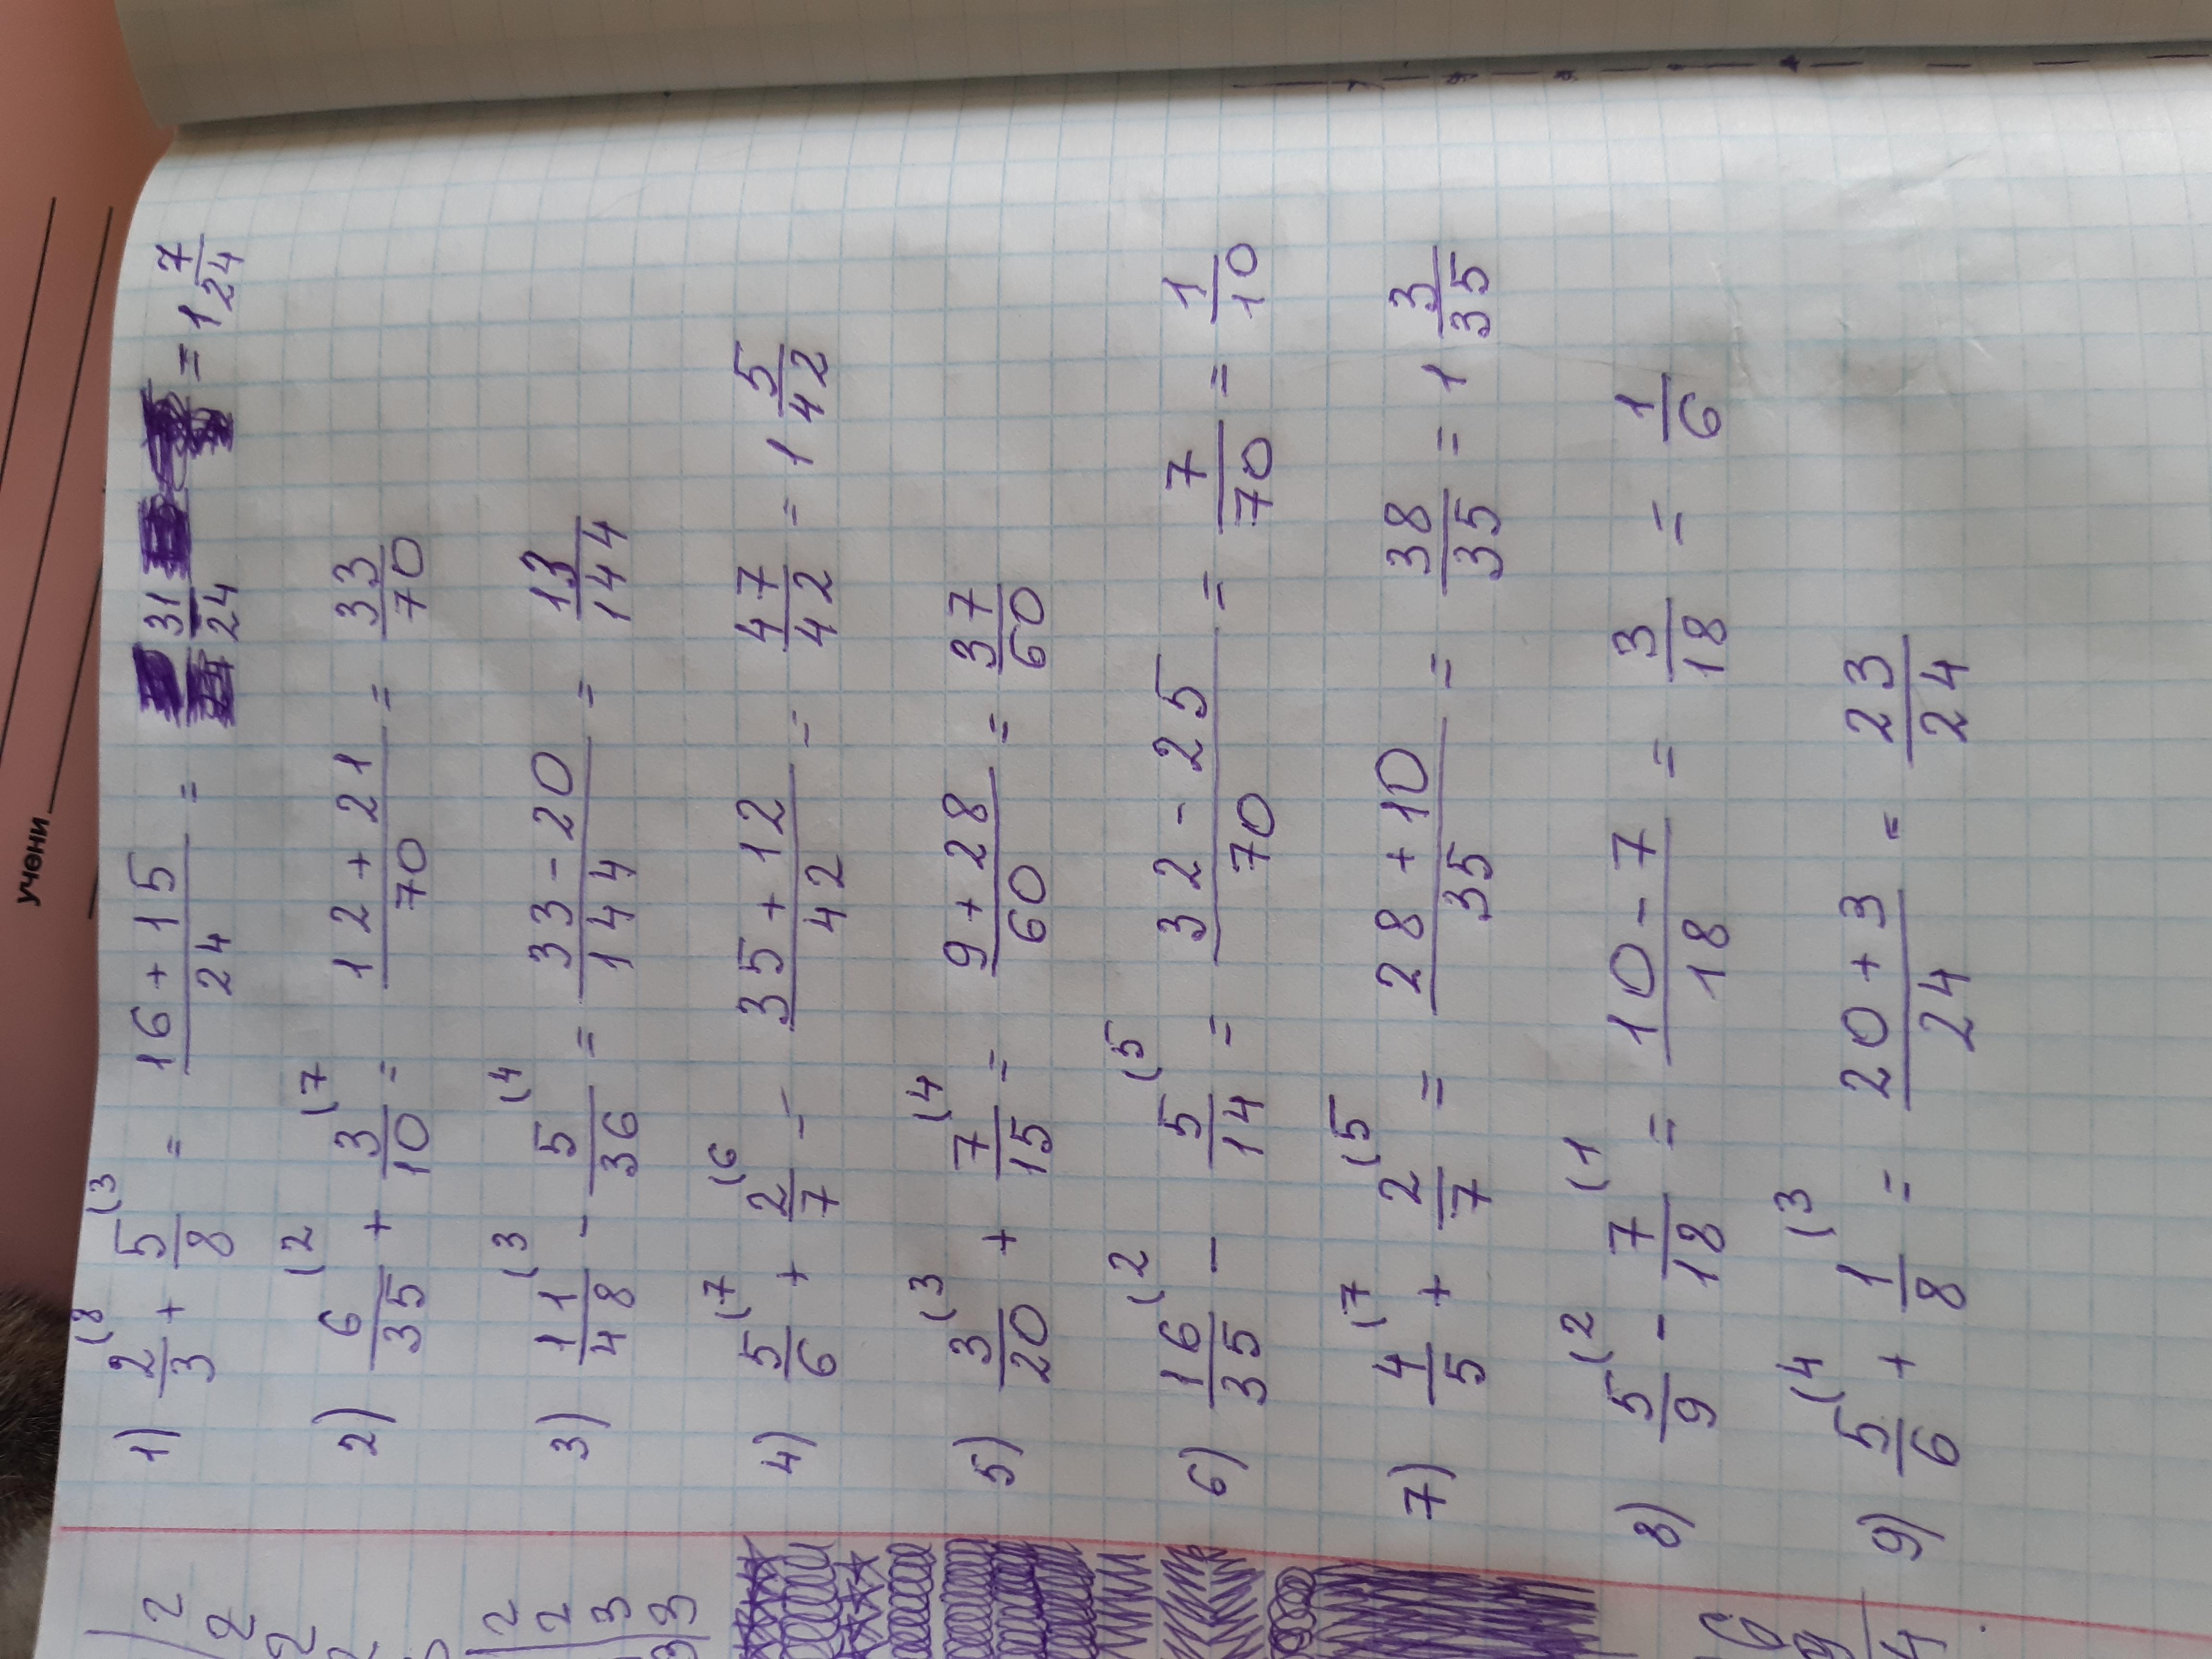 учени
1) 2/3 (8 + 5/8 (3 = (16 + 15)/24 = 31/24 = 1 7/24
2) 6/35 (2 + 3/10 (7 = (12 + 21)/70 = 33/70
3) 11/48 (3 - 5/36 (4 = (33 - 20)/144 = 13/144
4) 5/6 (7 + 2/7 (6 - (35 + 12)/42 - 47/42 = 1 5/42
5) 3/20 (3 + 7/15 (4 = (9 + 28)/60 = 37/60
6) 16/35 (2 - 5/14 (5 = (32 - 25)/70 = 7/70 = 1/10
7) 4/5 (7 + 2/7 (5 = (28 + 10)/35 = 38/35 = 1 3/35
8) 5/9 (2 - 7/18 (1 = (10 - 7)/18 = 3/18 = 1/6
9) 5/6 (4 + 1/8 (3 = (20 + 3)/24 = 23/24
2
2
2
2
2
3
3